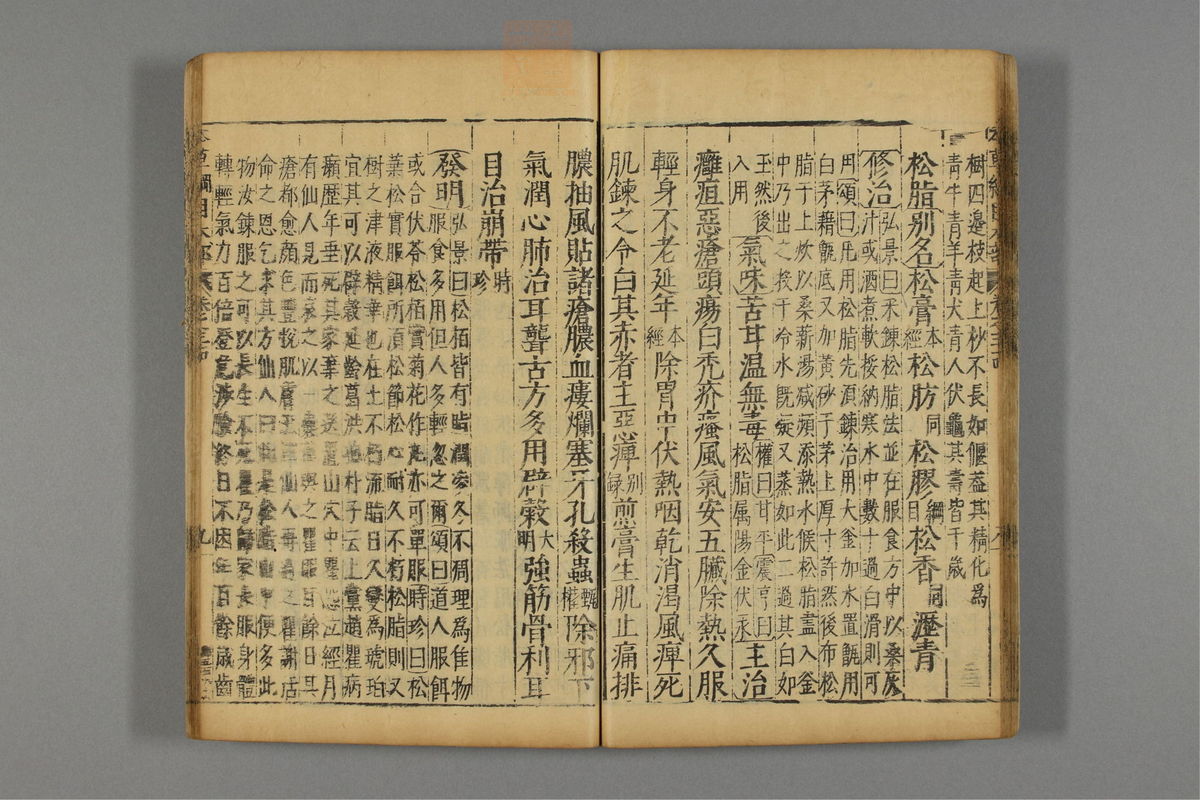 樹四邊枝起上杪不長如偃葢其精化為
青牛青羊青犬青人伏龜其壽皆千歲
松脂別名松膏本經松肪同松膠綱目松香同瀝青
修治弘景曰采鍊松脂法並在服食方中以桑灰
汁或酒煮軟挼納寒水中數十過白滑則可
用頌曰凡用松脂先須鍊治用大釜加水置甑用
白茅藉甑底又加黃砂于茅上厚寸許然後布松
脂于上炊以桑薪湯減頻添熱水候松脂盡入釜
中乃出之投于冷水既凝又蒸如此二過其白如
玉然後入用
氣味苦甘溫無毒權曰甘平震亨曰松脂属陽金伏汞主治
癰疽惡瘡頭瘍白禿疥瘙風氣安五臟除熱久服
輕身不老延年本經除胃中伏熱咽乾消渴風痺死
肌鍊之令白其赤者主惡痺別録煎膏生肌止痛排
膿抽風貼諸瘡膿血瘻爛塞牙孔殺蟲甄權除邪下
氣潤心肺治耳聾古方多用辟穀大明強筋骨利耳
目治崩帶時珍
發明弘景曰松栢皆有脂潤凌冬不凋理為佳物
服食多用但人多輕忽之爾頌曰道人服餌
或合伏苓松栢實菊花作丸亦可單服時珍曰松
葉松實服餌所須松節松心耐久不朽松脂則又
樹之津液精華也在土不朽流脂日久變為琥珀
宜其可以辟穀延齡葛洪抱朴子云上黨趙瞿病
癩歷年垂死其家棄之送置山穴中瞿怨泣經月
有仙人見而哀之以一囊藥與之瞿服百餘日其
瘡都愈顏色豐悅肌膚玉澤仙人再過之瞿謝活
命之恩乞求其方仙人曰此是松脂山中便多此
物汝鍊服之可以長生不死瞿乃歸家長服身體
轉輕氣力百倍登危涉險終日不困年百餘歲齒
本草綱目木部 卷之三十四 九